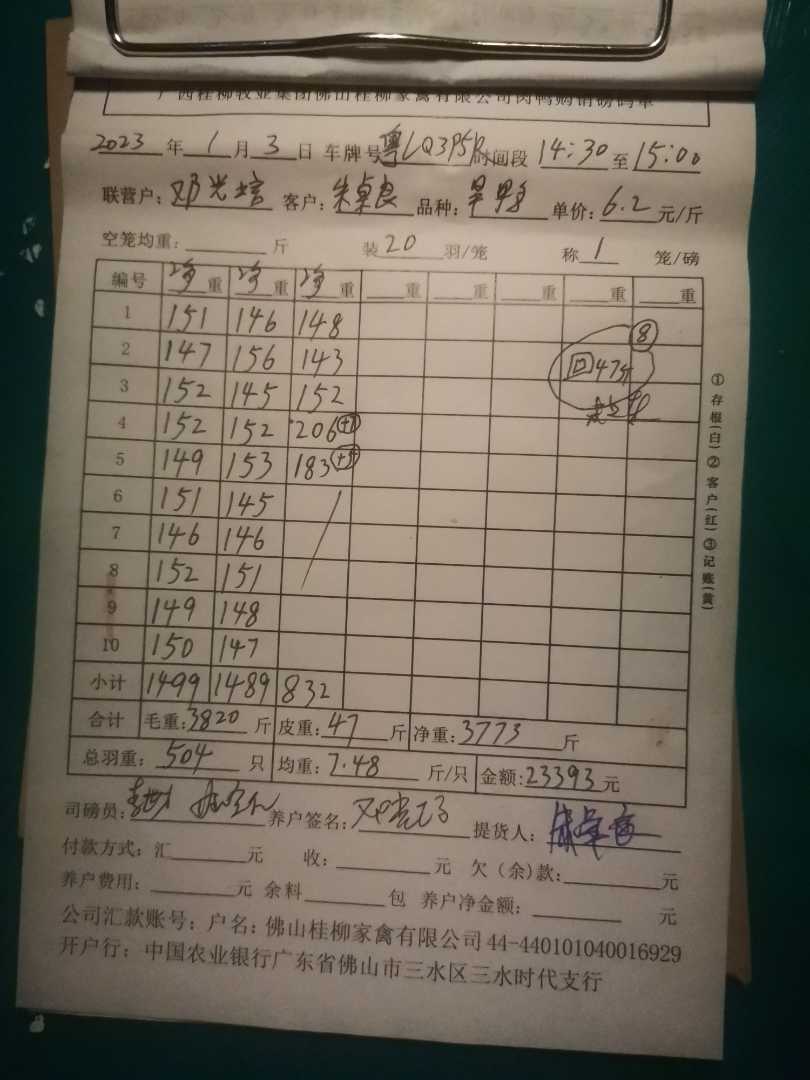 广西桂柳牧业集团佛山桂柳家禽有限公司肉鸭购销磅码单
2023 年 1 月 3 日 车牌号 粤LQ395R 时间段 14:30 至 15:00
联营户: 邓光培 客户: 朱卓良 品种: 旱鸭 单价: 6.2 元/斤
空笼均重: 斤 装 20 羽/笼 称 1 笼/磅
编号 净重 净重 净重 重 重 重 重 重
1 151 146 148 8
2 147 156 143 回47斤
3 152 145 152
4 152 152 206
5 149 153 183
6 151 145
7 146 146
8 152 151
9 149 148
10 150 147
小计 1499 1489 832
合计 毛重: 3820 斤 皮重: 47 斤 净重: 3773 斤
总羽重: 504 只 均重: 7.48 斤/只 金额: 23393 元
司磅员: 养户签名: 提货人:
付款方式: 汇 元 收: 元 欠(余)款: 元
养户费用: 元 余料 包 养户净金额: 元
公司汇款账号: 户名: 佛山桂柳家禽有限公司 44-440101040016929
开户行: 中国农业银行广东省佛山市三水区三水时代支行
①存根(白)②客户(红)③记账(黄)